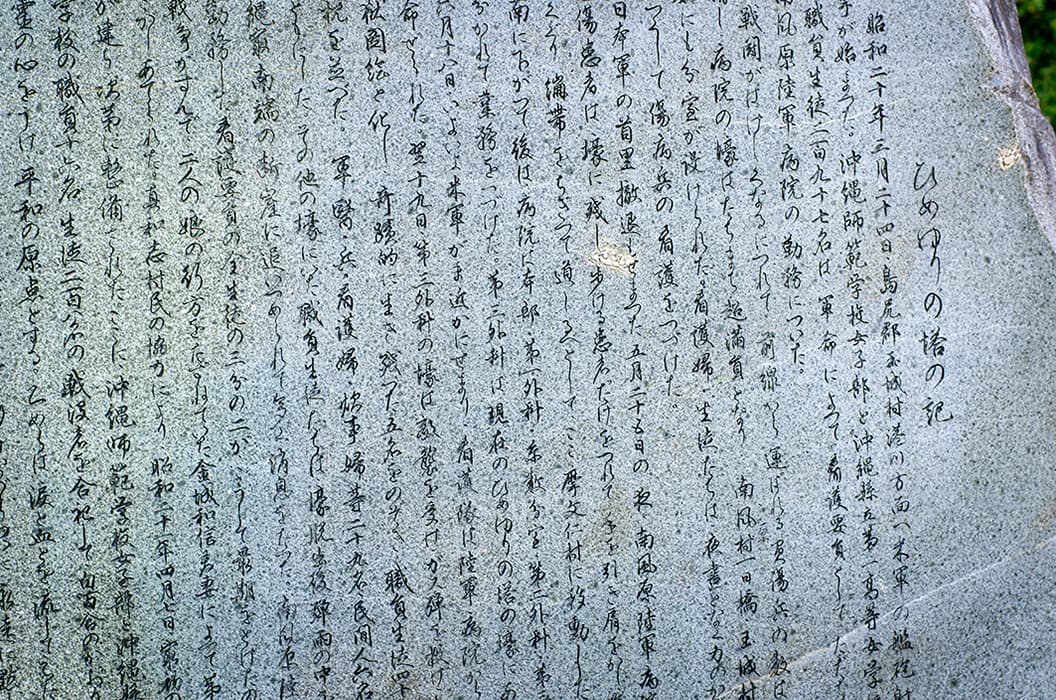 ひめゆりの塔の記
昭和二十年三月二十四日島尻郡玉城村港川方面へ米軍の艦砲
が始まつた。沖縄師範学校女子部と沖縄県立第一高等女学
職員生徒二百九十七名は軍命によつて看護要員としてただち
南風原陸軍病院の勤務についた。
戦闘がはげしくなるにつれて前線から運ばれる負傷兵の数は
し病院の壕はたちまち超満員となり南風村一日橋玉城村
にも分室が設けられた。看護婦・生徒たちは夜昼となく力のか
つくして傷病兵の看護をつづけた。
日本軍の首里撤退もせまつた五月二十五日の夜南風原陸軍病
傷患者は壕に残し歩ける患者だけをつれて手を引き肩をかし
繃帯をちぎつて道しるべとしてここ摩文仁村に移動した
南に下がつて後は病院は本部・第一外科・糸数分室・第二外科・第三
分かれて業務をつづけた。第三外科は現在のひめゆりの塔の壕にあ
六月十八日いよいよ米軍がま近かにせまり、看護隊は陸軍病院から
命ぜられた。翌十九日第三外科の壕は敵襲を受けガス弾を投げ
図絵と化し奇蹟的に生き残つた五名をのぞき職員生徒四十
を並べた。軍医・兵・看護婦・炊事婦等二十九名民間人六名
にした。その他の壕にいた職員生徒たちは壕脱出後弾雨の中を
南端の断崖に追いつめられて多く消息をたつた。南風原陸
勤務した看護要員の全生徒の三分の二がこうして最期をとげたの
戦争がすんで二人の娘の行方をたずねていた金城和信夫妻によつて第
あてられた。真和志村民の協力により昭和二十一年四月七日
が建ち次第に整備されたここに沖縄師範学校女子部と沖縄県
学校の職員十六名生徒二百八名の戦没者を合祀して
霊の心をうけ平和の原点とする。乙女らは涙と血とを流して